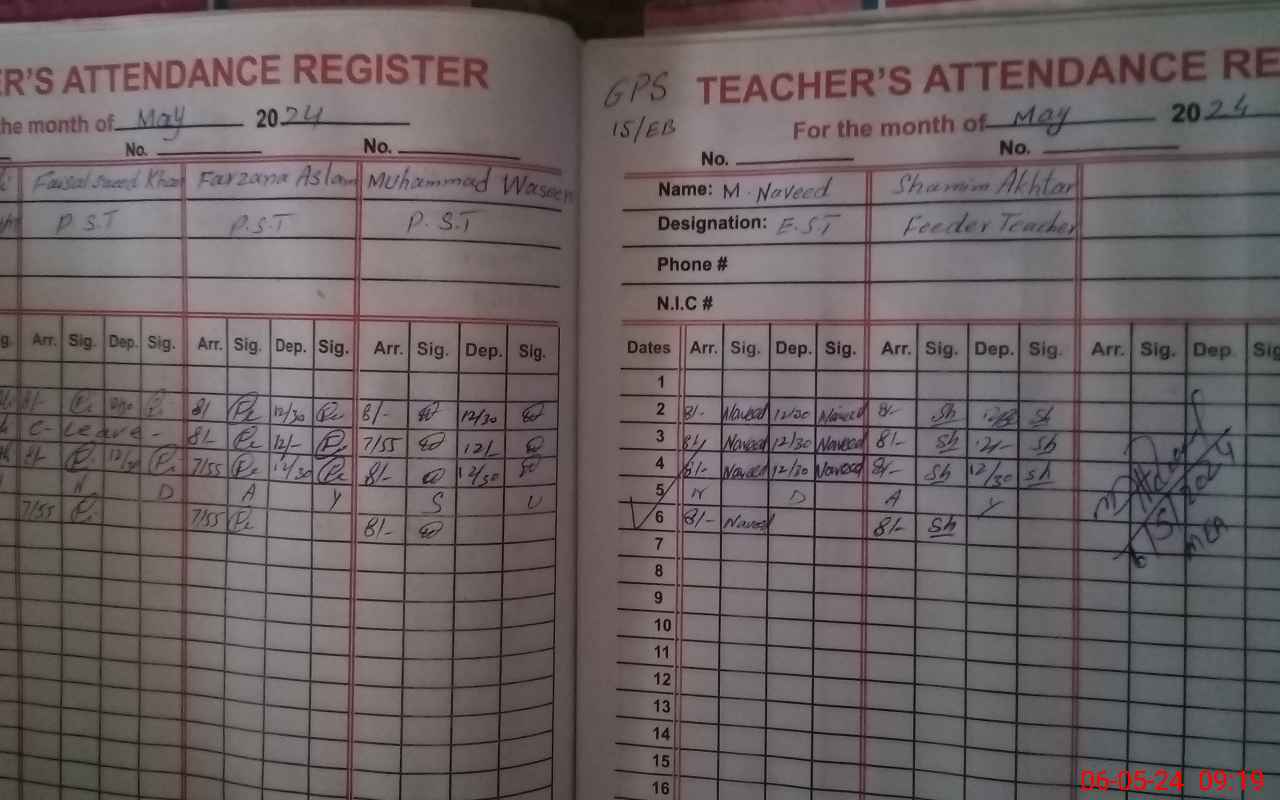 ER'S ATTENDANCE REGISTER
he month of May 2024
No. No.
Faisal Saeed Khan Farzana Aslam Muhammad Waseem
P.S.T P.S.T P.S.T
g. Arr. Sig. Dep. Sig. Arr. Sig. Dep. Sig. Arr. Sig. Dep. Sig.
8/- 8/ 12/30 8/- 12/30
C-Leave- 8/- 12/- 7/55 12/-
8/- 12/30 7/55 12/30 8/- 12/30
N D A Y S U
7/55 7/55 8/-
GPS
15/EB
TEACHER'S ATTENDANCE RE
For the month of May 2024
No. No.
Name: M. Naveed Shamim Akhtar
Designation: E.S.T Feeder Teacher
Phone #
N.I.C #
Dates Arr. Sig. Dep. Sig. Arr. Sig. Dep. Sig. Arr. Sig. Dep. Sig
1
2 8/- Naveed 12/30 Naveed 8/- Sh Sh
3 8/- Naveed 12/30 Naveed 8/- Sh 12/- Sh
4 8/- Naveed 12/30 Naveed 8/- Sh 12/30 Sh
5 N D A Y
6 8/- Naveed 8/- Sh
7
8
9
10
11
12
13
14
15
16
6/5/2024
MEA
06-05-24 09:19